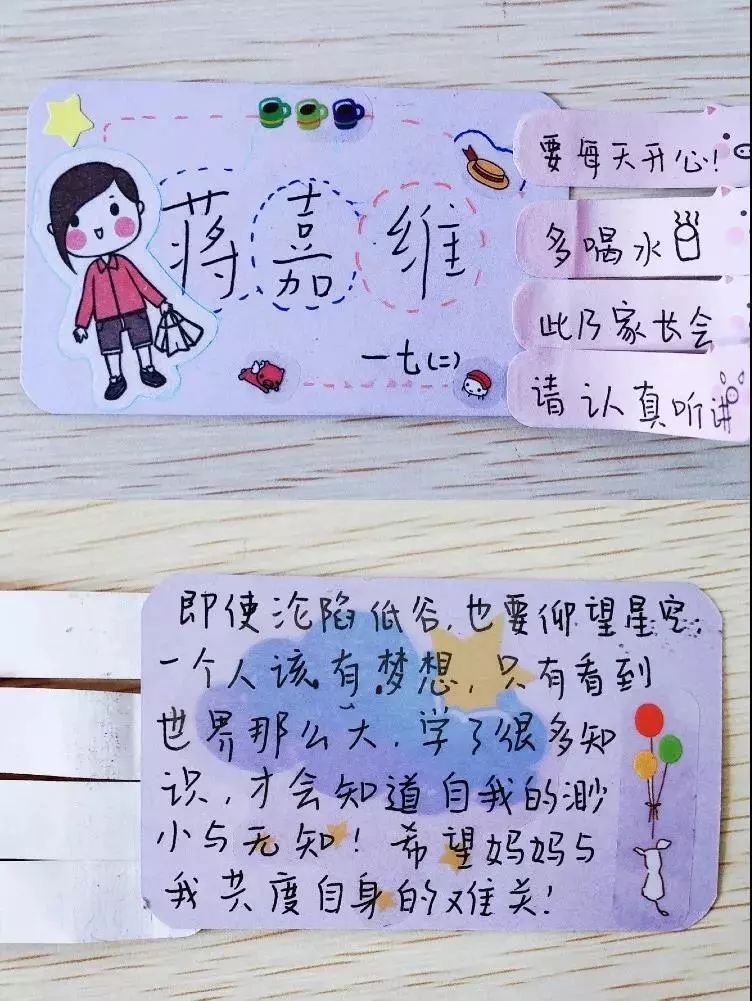 蒋嘉维
一七(二)
要每天开心!
多喝水
此乃家长会
请认真听讲
即使沦陷低谷,也要仰望星空,
一个人该有梦想,只有看到
世界那么大,学了很多知
识,才会知道自我的渺
小与无知!希望妈妈与
我共度自身的难关!